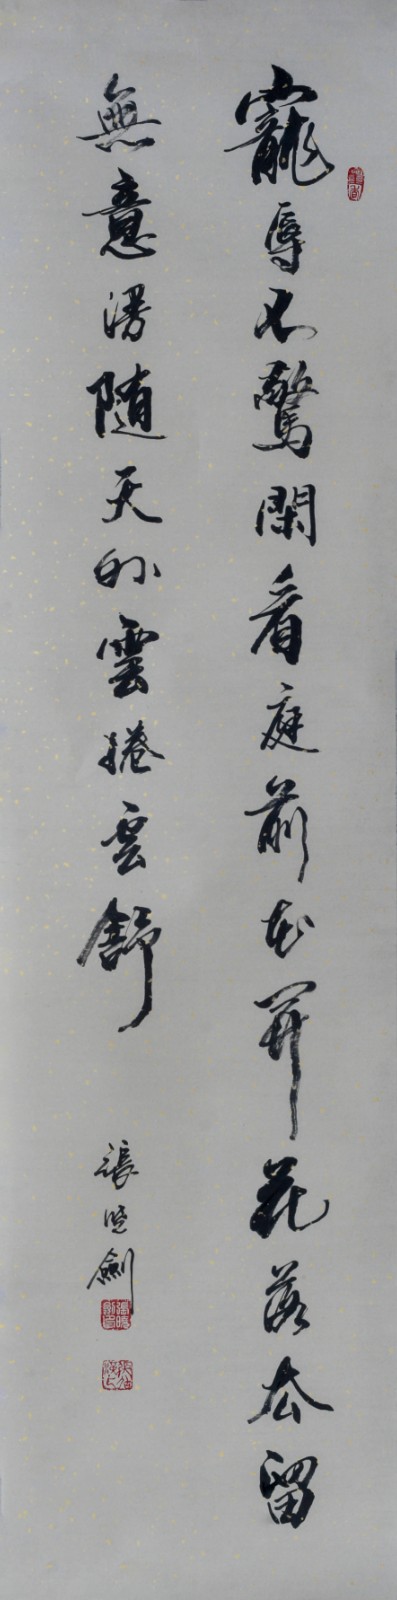 寵辱不驚閑看庭前花開花落去留
無意漫随天外雲捲雲舒
張晓劍